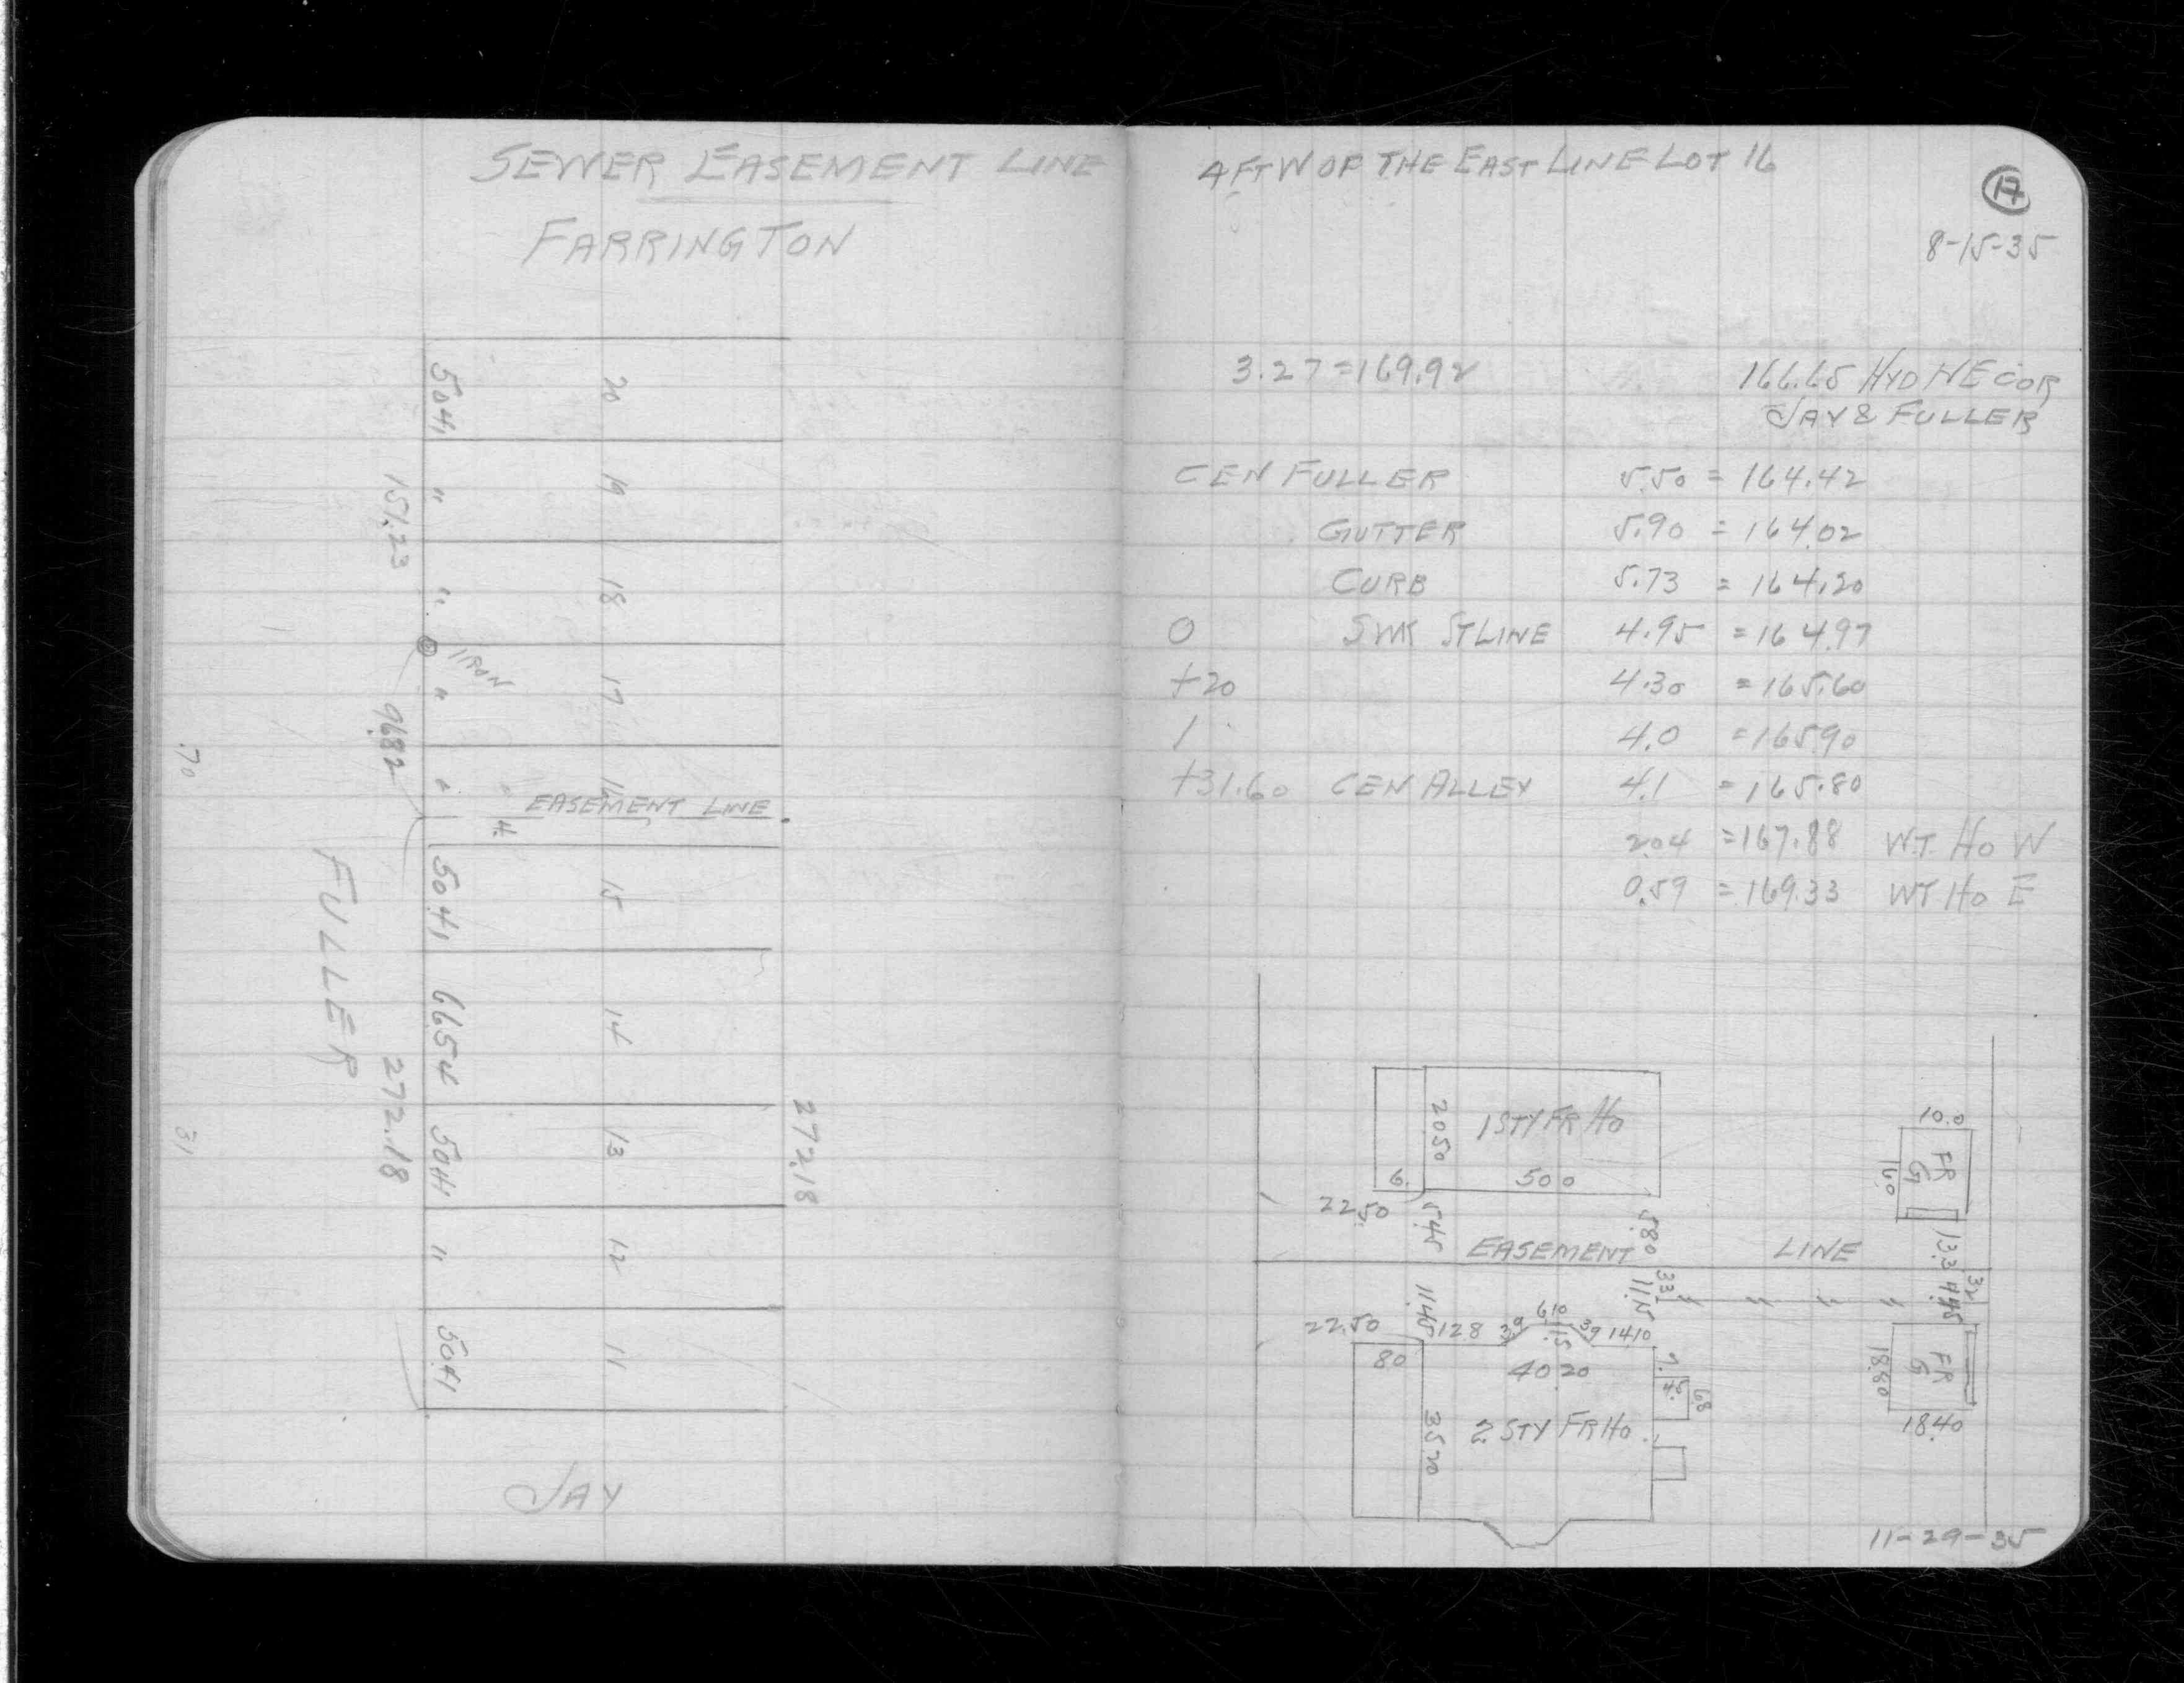 SEWER EASEMENT LINE
FARRINGTON
20
50.41
19
"
151.23
18
"
IRON
17
"
96.82
70
16
"
EASEMENT LINE
4.
15
50.41
FULLER
14
66.54
272.18
31
13
50.41
272.18
12
"
11
50.41
JAY
4 FT W OF THE EAST LINE LOT 16
17
8-15-35
3.27 = 169.92 166.65 HYD NE COR
JAY & FULLER
CEN FULLER 5.50 = 164.42
GUTTER 5.90 = 164.02
CURB 5.73 = 164.20
0 SWK ST LINE 4.95 = 164.97
+20 4.30 = 165.60
1 4.0 = 165.90
+31.60 CEN ALLEY 4.1 = 165.80
2.04 = 167.88 WT. HO W
0.59 = 169.33 WT HO E
1 STY FR HO
20.50
50 0
6.
22.50
5.45
5.80
10.0
FR G
16.0
13.3
EASEMENT LINE
11.45
11.15
33
32
4.45
22.50
12 8
3.9
6.10
1.15
3.9
14 10
80
40.20
7.
4.5
68
FR G
18.60
18.40
2 STY FR HO
35.20
11-29-35